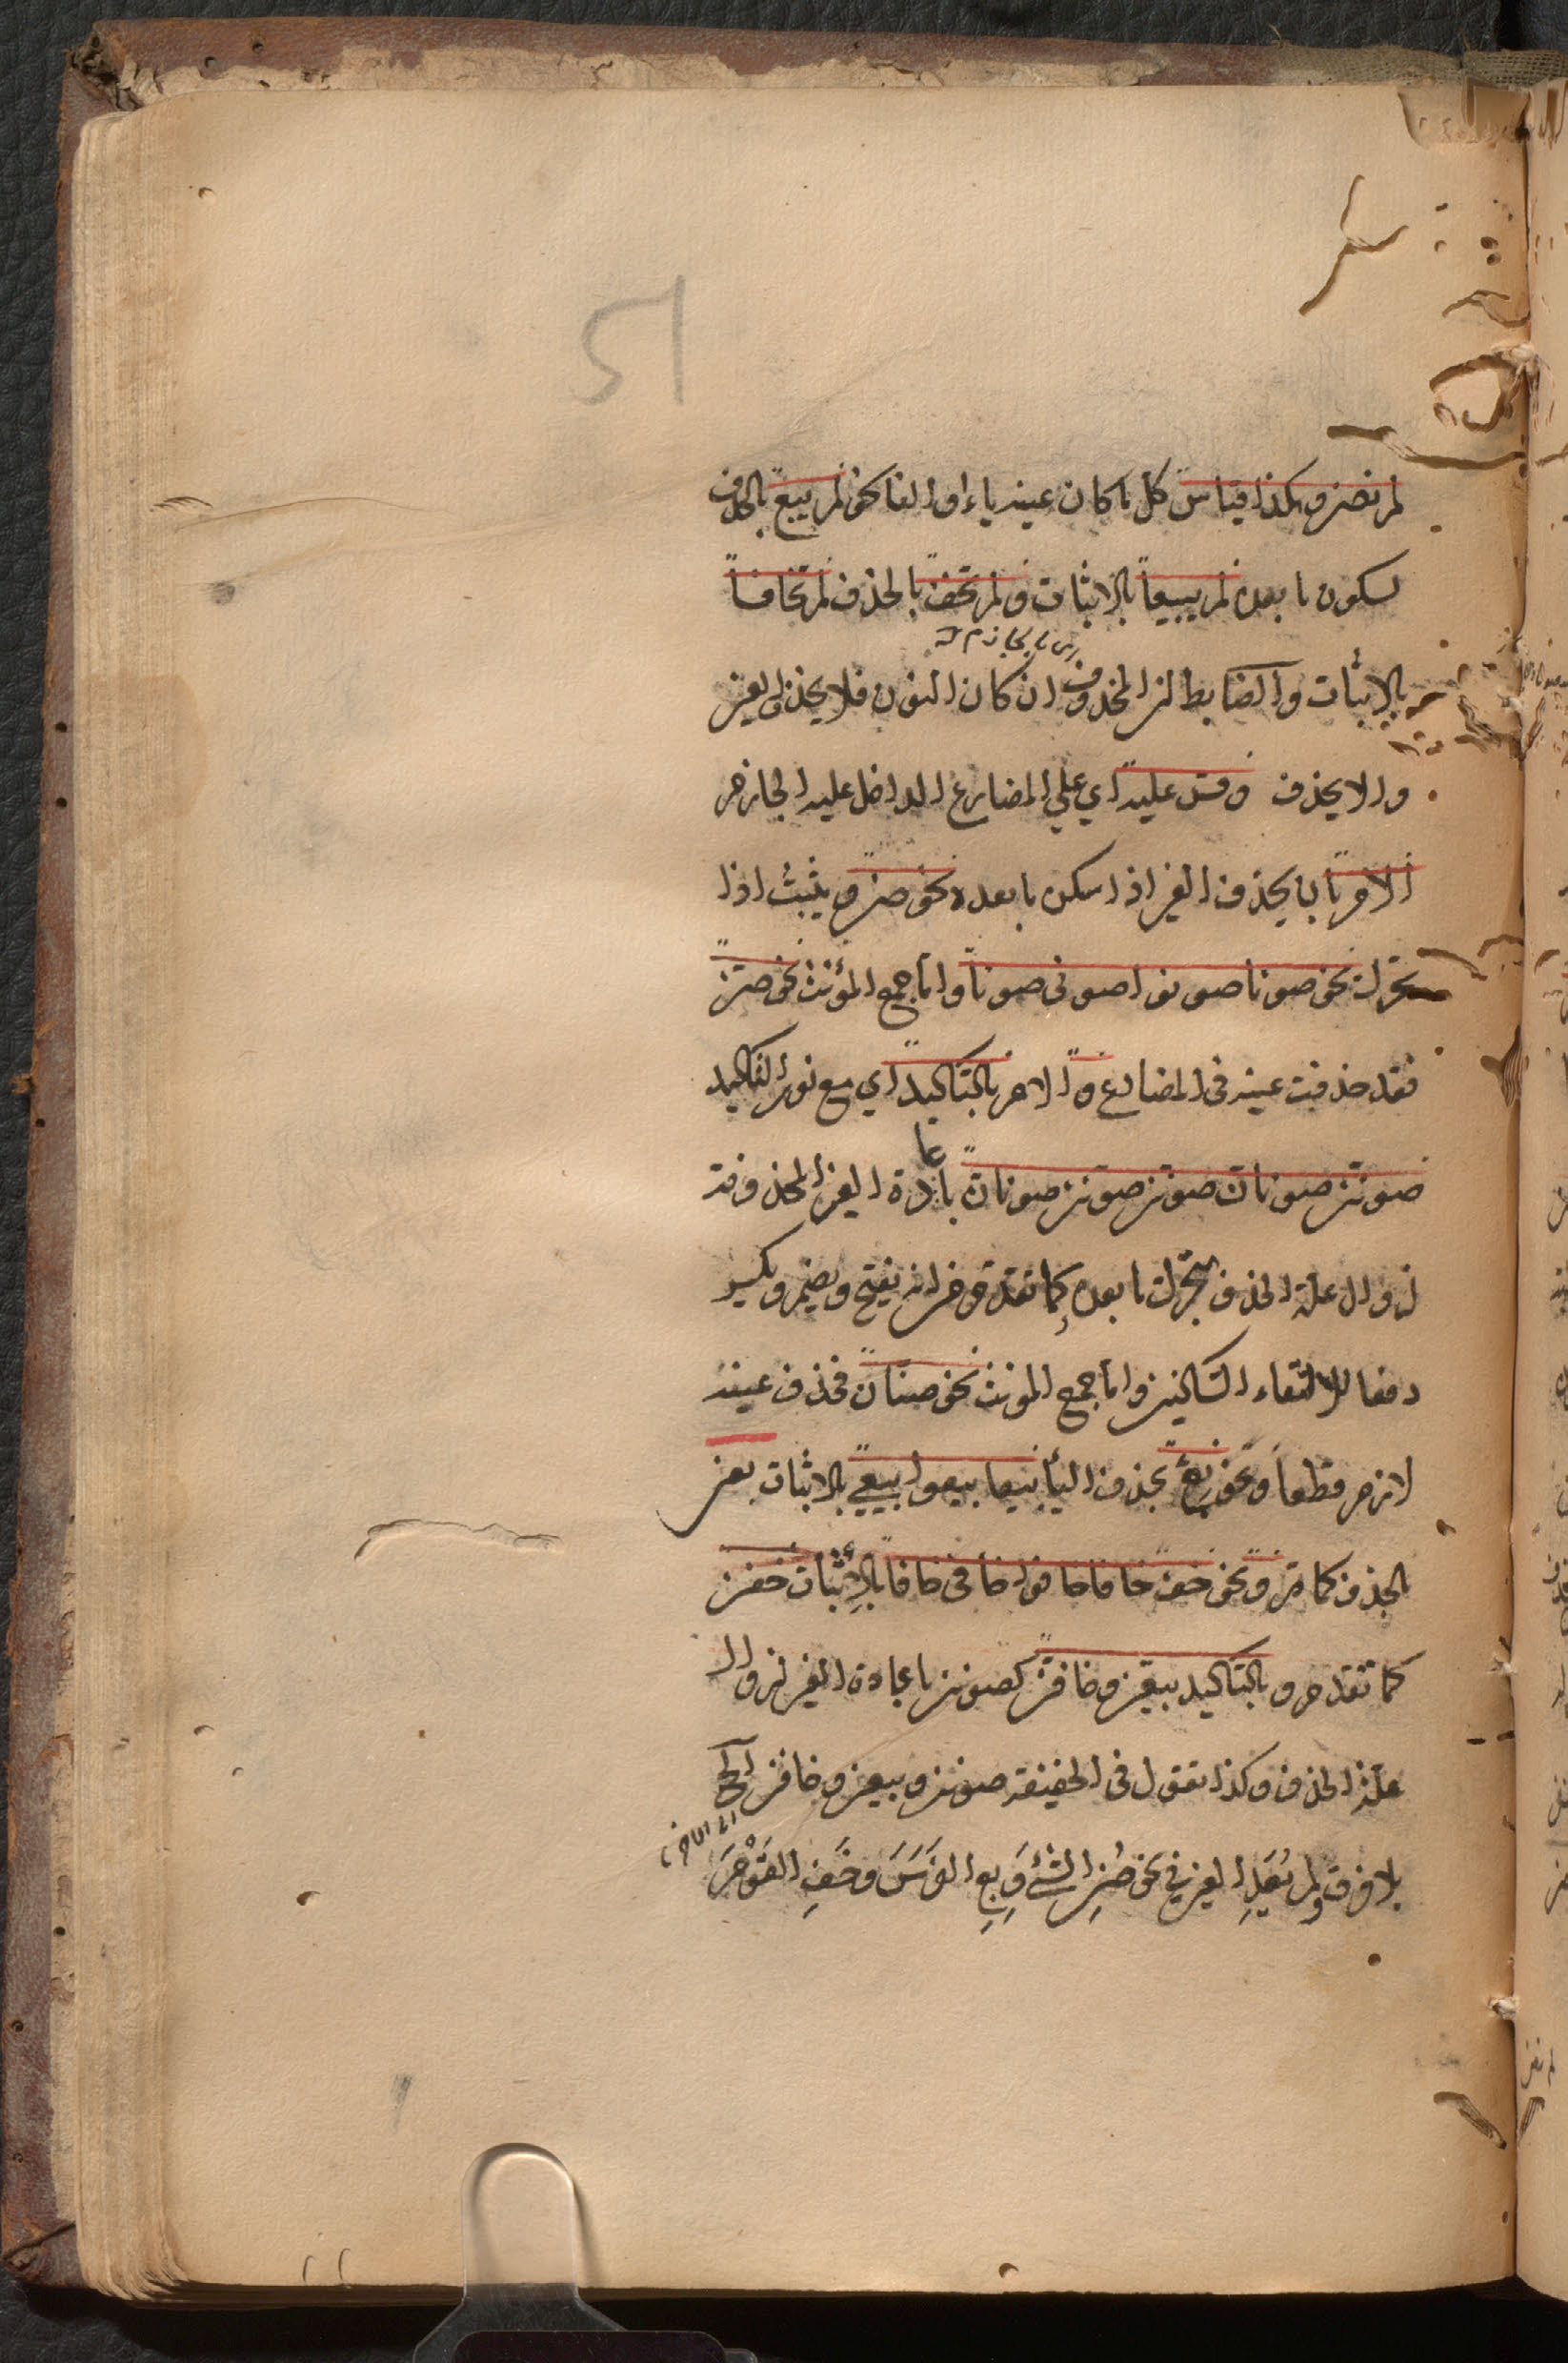 51
لم نصن وهكذا قياس كل ما كان عينه ياء او الفا نحو لم يبع بالحذف
لسكون ما بعده لم يبيعا بالاثبات و لم يخف بالحذف لم يخافا
بالإثبات والضابط ان المحذوف ان كان النون فلا يحذف العين
والا يحذف وقس عليه اي علي المضارع الداخل عليه الجازم
الامر بان يحذف العين اذا سكن ما بعده نحو صن ويثبت اذا
تحرك نحو صونا صونوا صوني صونا واما جمع المؤنث نحو صن
فقد حذفت عينه في المضارع و الامر بالتاكيد اي مع نون التاكيد
صونن صونان صونن صونن صونان باعادة العين المحذوفة
لزوال علة الحذف بتحرك ما بعده كما تقدم من انه يفتح ويضم ويكسر
دفعا لالتقاء الساكنين واما جمع المونث نحو صنان فحذف عينه
لازم قطعا ونحو بع بحذف الياء بيعا بيعوا بيعي بالاثبات بعن
بالحذف كما مر و نحو خف خافا خافوا خافي خافا بالإثبات خفن
كما تقدم و بالتاكيد بيعن وخافن كصونن باعادة العين لزوال
علة الحذف وكذا تقول في الخفيفة صونن وبيعن وخافن الخ
بلا فرق ولم تُعَدِ العين في نحو صُنِ الشئَ وَبِعِ الفرَسَ وخَفِ القَوْمَ